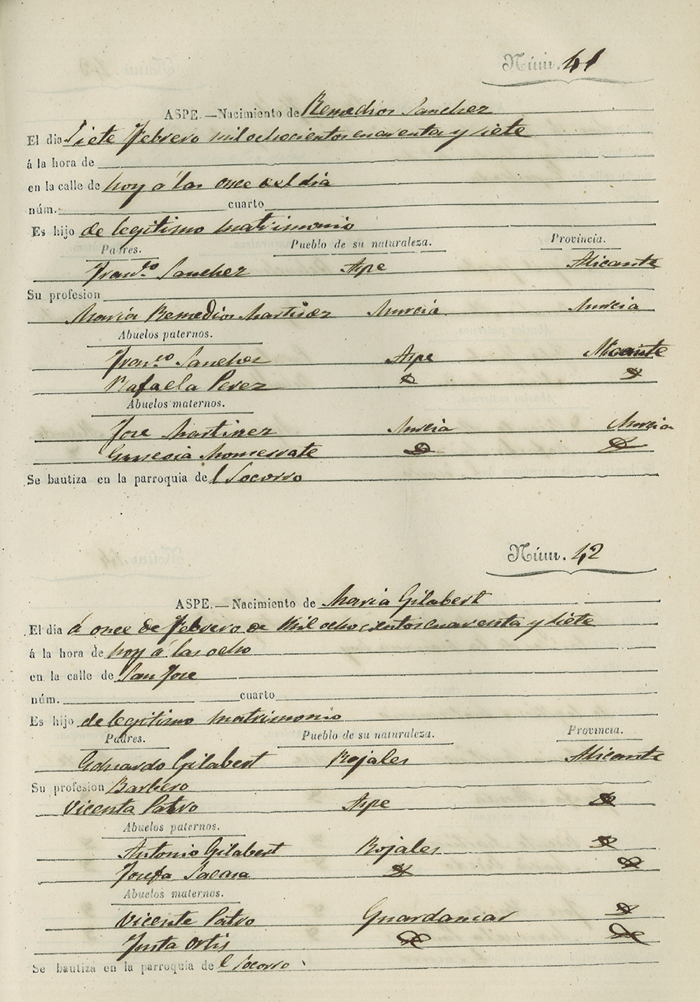 Núm. 41
ASPE.—Nacimiento de Remedios Sanchez
El dia Siete Febrero mil ochocientos cuaventa y siete
á la hora de
en la calle de hoy á las once del dia
núm. cuarto
Es hijo de legitimo matrimonio
Padres. Pueblo de su naturaleza. Provincia.
Fran.co Sanchez Aspe Alicante
Su profesion
Maria Remedios Martinez Murcia Murcia
Abuelos paternos.
Fran.co Sanchez Aspe Alicante
Rafaela Perez
Abuelos maternos.
Jose Martinez Murcia Murcia
Se bautiza en la parroquia de l Socorro
Núm. 42
ASPE.—Nacimiento de Maria Gilabert
El dia á once de Febrero de mil ochocientos cuaventa y siete
á la hora de hoy á las ocho
en la calle de San Jose
núm. cuarto
Es hijo de legitimo matrimonio
Padres. Pueblo de su naturaleza. Provincia.
Eduardo Gilabert Rojales Alicante
Su profesion Barbero
Vicenta Patro Aspe
Abuelos paternos.
Antonio Gilabert Rojales
Josefa
Abuelos maternos.
Vicente Patro Guardamar
Justa Ortis
Se bautiza en la parroquia de l Socorro